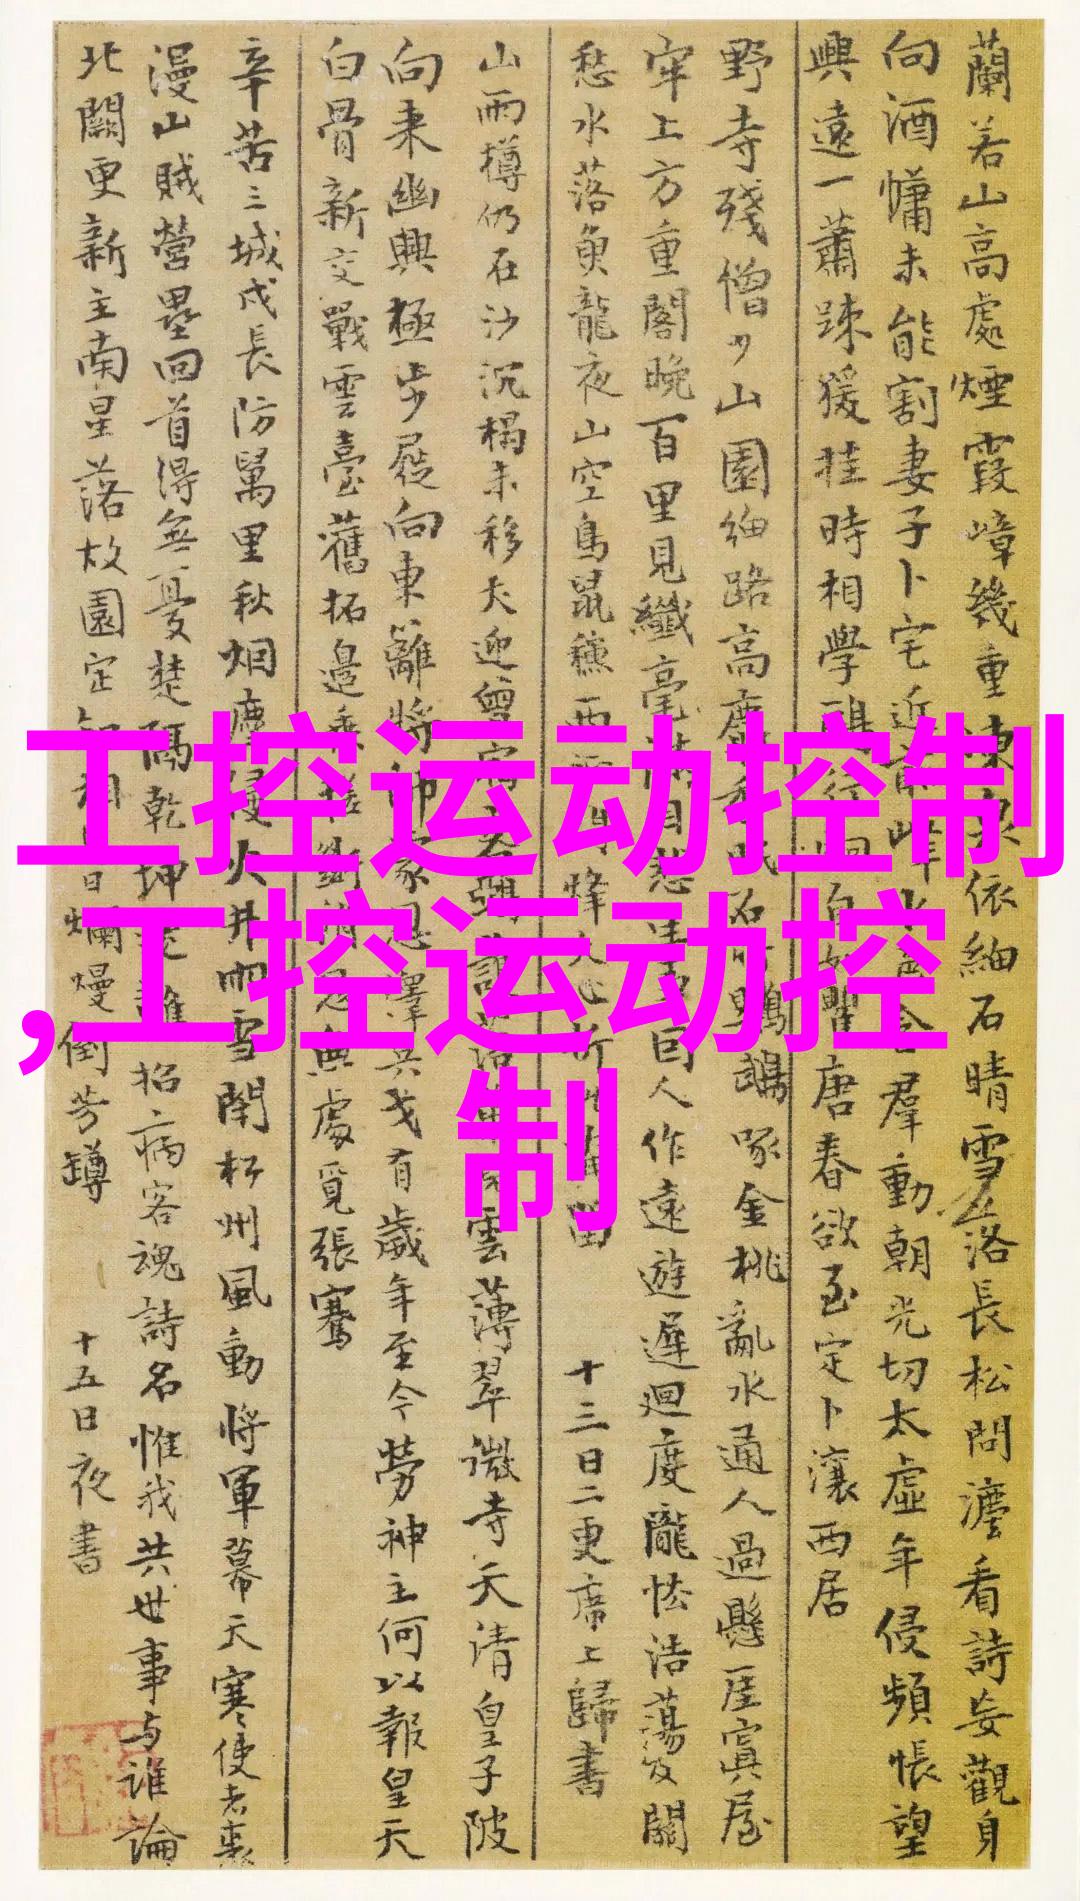 蘭若山高處煙霞嶂幾重凍泉依細石晴雪落長松問灋看詩妄觀身
向酒慵未能割妻子卜宅近前峰 群動朝光切太虛年侵頻悵望
興遠一蕭踈猨挂時相學 唐春欲至定卜瀼西居
野寺殘僧少山園細路高麝 石 鸚鵡啄金桃亂水通人過懸崖寘屋
牢上方重閣晚百里見纖毫 人作遠遊遲迴度隴怯浩蕩及關
愁水落魚龍夜山空鳥鼠穐西 烽火 十三日二更席上歸書
山雨樽仍在沙沉榻未移犬迎曾宿 雲薄翠微寺天清皇子陂
向来幽興極步屧向東籬將帥家恩澤兵戈有歲年至今勞神主何以報皇天
白骨新交戰雲臺舊拓邊乘槎斷消息無處覓張騫
辛苦三城戍長防萬里秋烟塵侵火井雨雪閉松州風動將軍幕天寒使者裘
漫山賊營壘回首得無憂楚隔乾坤遠難招病客魂詩名惟我共世事与誰論
北闕更新主南星落故園定知 日爛熳倒芳罇 十五日夜書
工控运动控制
,工控运动控
制